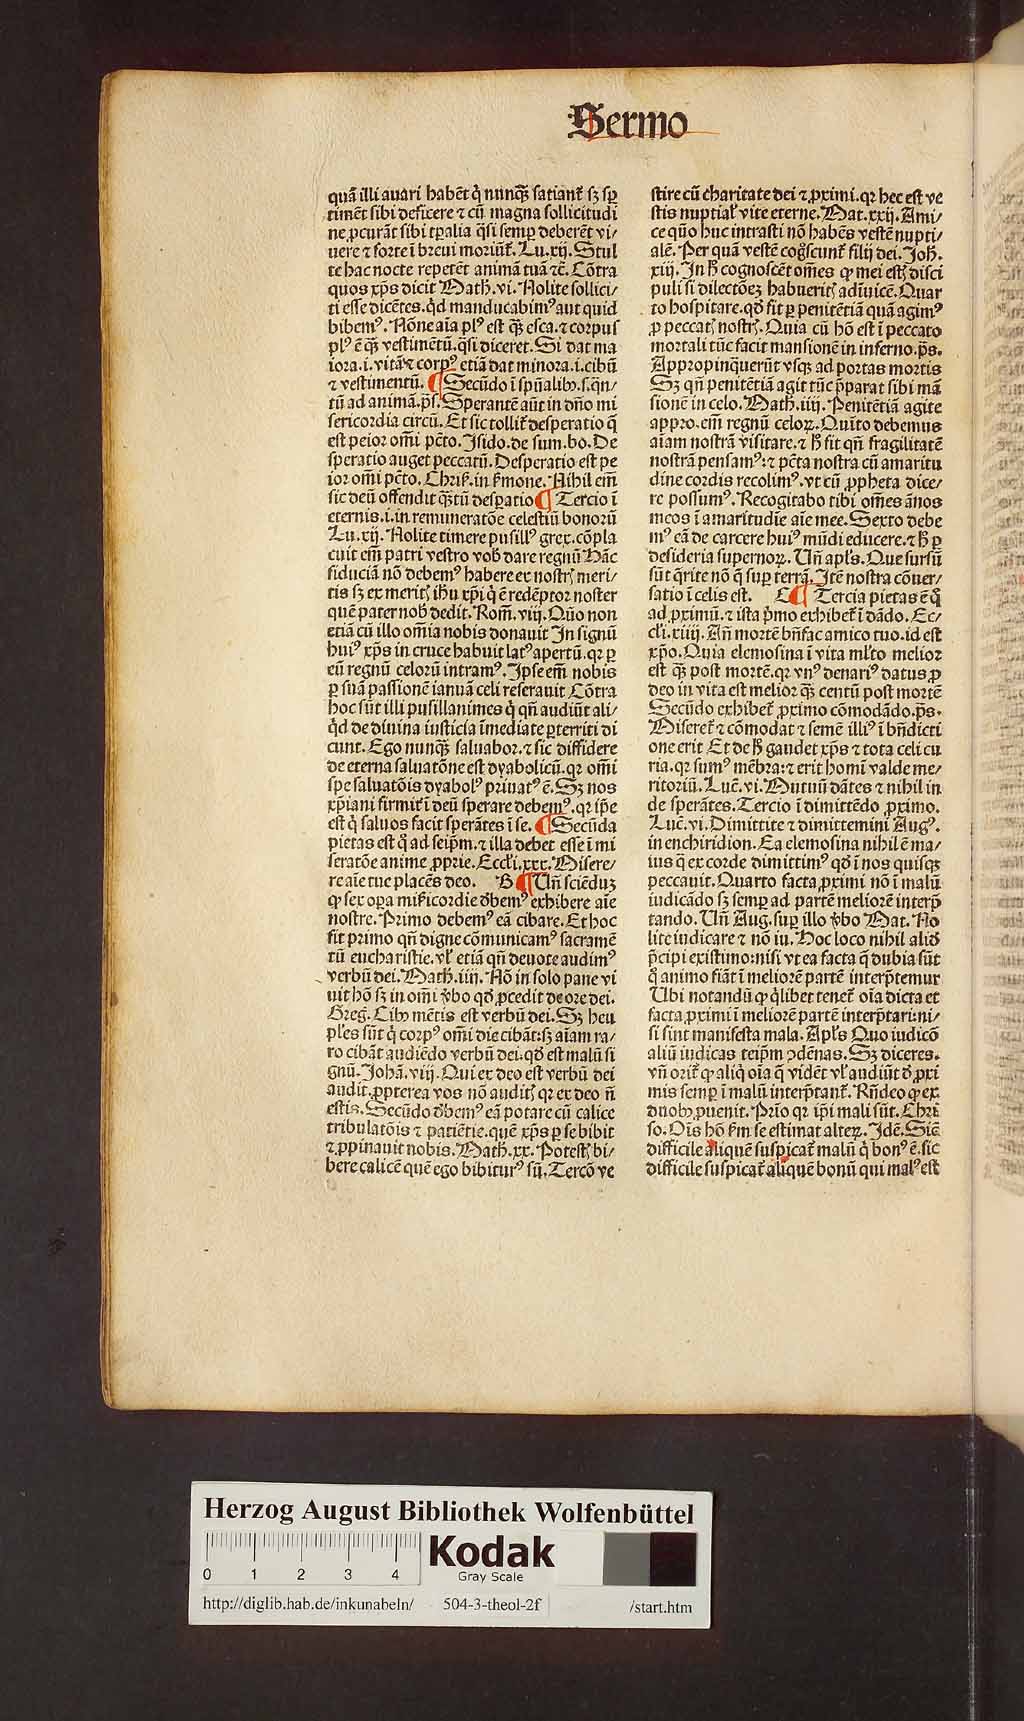 Sermo
quā illi avari habēt q̇ nunq̄ꝫ satiant᷑ sꝫ sꝑ
timēt sibi deficere ⁊ cū magna sollicitudi
ne ꝓcurāt sibi tꝑalia q̄si semꝑ deberēt vi⸗
uere ⁊ forte ī breui moriūt᷑. Lu. xij. Stul
te hac nocte repetēt animā tuā ⁊c̄. Cōtra
quos xp̄s dicit Math. vi. Nolite sollici⸗
ti esse dicētes. q̇d manducabimꝰ aut quid
bibemꝰ. Nōne aīa plꝰ est q̄ꝫ esca. ⁊ corpus
plꝰ ē q̄ꝫ vestimentū. q̄si diceret. Si dat ma
iora .i. vitā ⁊ corpꝰ etiā dat minora .i. cibū
⁊ vestimentū. ¶ Secūdo ī spūalibꝫ .s. q̄n⸗
tū ad animā. ps̄. Sperantē aūt in dn̄o mi
sericordia circū. Et sic tollit᷑ desperatio q̄
est peior om̄i pctō. Isido. de sum. bo. De
speratio auget peccatū. Desperatio est pe
ior om̄i pctō. Chris. in s̄mone. Nihil em̄
sic deū offendit q̄ꝫtū desꝑatio ¶ Tercio ī
eternis .i. in remuneratōe celestiū bonorū
Lu. xij. Nolite timere pusillꝰ grex. cōpla
cuit em̄ patri vestro vob̄ dare regnū Hāc
fiduciā nō debemꝰ habere ex nostrꝭ meri⸗
tis sꝫ ex meritꝭ ih̄u xp̄i q̇ ē redēptor noster
quē pater nob̄ dedit. Rom̄. viij. Quō non
etiā cū illo om̄ia nobis donauit In signū
huiꝰ xp̄s in cruce habuit latꝰ apertū. qꝛ ꝑ
eū regnū celorū intramꝰ. Ipse em̄ nobis
ꝑ suā passionē ianuā celi reserauit Cōtra
hoc sūt illi pusillanimes q̇ qn̄ audiūt ali⸗
q̇d de diuina iusticia īmediate ꝑterriti di
cunt. Ego nunq̄ꝫ saluabor. ⁊ sic diffidere
de eterna saluatōne est dyabolicū. qꝛ om̄i
spe saluatōis dyabolꝰ priuatꝰ ē. Sꝫ nos
xp̄iani firmit᷑ ī deū sperare debemꝰ. qꝛ ip̄e
est q̇ saluos facit sperātes ī se. ¶ Secūda
pietas est q̄ ad seip̄m. ⁊ illa debet esse ī mi
seratōe anime ꝓprie. Eccl̄i. xxx. Misere⸗
re aīe tue placēs deo. B ¶ Un̄ sciēduꝫ
ꝙ sex oꝑa mīcordie dēbemꝰ exhibere aīe
nostre. Primo debemꝰ eā cibare. Et hoc
fit primo qn̄ digne cōmunicamꝰ sacramē
tū eucharistie. vl̄ etiā qn̄ deuote audimꝰ
verbū dei. Math. iiij. Nō in solo pane vi
uit hō sꝫ in om̄i v̄bo qd̄ ꝓcedit de ore dei.
Greg. Cibꝫ mētis est verbū dei. Sꝫ heu
pl̄es sūt q̇ corpꝰ om̄i die cibāt: sꝫ aīam ra⸗
ro cibāt audiēdo verbū dei. qd̄ est malū si
gnū. Johā. viij. Qui ex deo est verbū dei
audit. ꝓpterea vos nō auditꝭ qꝛ ex deo n̄
estis. Secūdo dēbemꝰ eā potare cū calice
tribulatōis ⁊ patiētie. quē xp̄s ꝑ se bibit
⁊ ꝓpinauit nobis. Math. xx. Potestꝭ bi⸗
bere calicē quē ego bibiturꝰ sū. Tercō ve
stire cū charitate dei ⁊ ꝓximi. qꝛ hec est ve
stis nuptial᷑ vite eterne. Mat. xxij. Ami⸗
ce quō huc intrasti nō habēs vestē nupti⸗
alē. Per quā vestē coḡscunt᷑ filij dei. Joh̄.
xiij. In h̄ cognoscēt om̄es ꝙ mei estꝭ disci
puli si dilectōeꝫ habueritꝭ adīuicē. Quar
to hospitare. qd̄ fit ꝑ penitētiā quā agimꝰ
ꝓ peccatꝭ nostrꝭ. Quia cū hō est ī peccato
mortali tūc facit mansionē in inferno. ps̄.
Appropinq̄uerūt vsqꝫ ad portas mortis
Sꝫ qn̄ penitētiā agit tūc p̄parat sibi mā
sionē in celo. Math. iiij. Penitētiā agite
appro. em̄ regnū celoꝝ. Quīto debemus
aīam nostrā visitare. ⁊ h̄ fit qn̄ fragilitatē
nostrā pensamꝰ: ⁊ pctā nostra cū amaritu
dine cordis recolimꝰ. vt cū ꝓpheta dice⸗
re possumꝰ. Recogitabo tibi om̄es ānos
meos ī amaritudīe aīe mee. Sexto debe
mꝰ eā de carcere huiꝰ mūdi educere. ⁊ h̄ ꝑ
desideria supernoꝝ. Un̄ apl̄s. Que sursū
sūt q̄rite nō q̄ suꝑ terrā. Itē nostra cōuer⸗
satio ī celis est. C ¶ Tercia pietas ē q̄
ad ꝓximū. ⁊ ista p̄mo exhibet᷑ ī dādo. Ec⸗
cl̄i. xiiij. An̄ mortē bn̄fac amico tuo. id est
xp̄o. Quia elemosina ī vita ml̄to melior
est q̄ꝫ post mortē. qꝛ vnꝰ denariꝰ datus ꝓ
deo in vita est melior q̄ꝫ centū post mortē
Secūdo exhibet᷑ ꝓximo cōmodādo. ps̄.
Miseret᷑ ⁊ cōmodat ⁊ semē illiꝰ ī bn̄dicti
one erit Et de h̄ gaudet xp̄s ⁊ tota celi cu
ria. qꝛ sumꝰ mēbra: ⁊ erit homī valde me⸗
ritoriū. Luc̄. vi. Mutuū dātes ⁊ nihil in
de sperātes. Tercio ī dimittēdo ꝓximo.
Luc̄. vi. Dimittite ⁊ dimittemini Augꝰ.
in enchiridion. Ea elemosina nihil ē ma⸗
ius q̄ ex corde dimittimꝰ qd̄ ī nos quisqꝫ
peccauit. Quarto facta ꝓximi nō ī malū
iudicādo sꝫ semꝑ ad partē meliorē interp̄
tando. Un̄ Aug. suꝑ illo v̄bo Mat. No
lite iudicare ⁊ nō iu. Hoc loco nihil aliḋ
p̄cipi existimo: nisi vt ea facta q̄ dubia sūt
q̊ animo fiāt ī meliorē partē interp̄temur
Ubi notandū ꝙ q̇libet tenet᷑ oīa dicta et
facta ꝓximi ī meliorē partē interp̄tari: ni⸗
si sint manifesta mala. Apl̄s Quo iudicō
aliū iudicas teip̄m ꝯdēnas. Sꝫ diceres.
vn̄ orit᷑ ꝙ aliq̇ oīa q̄ vidēt vl̄ audiūt d̄ ꝓxi
mis semꝑ ī malū interp̄tant᷑. Rn̄deo ꝙ ex
duobꝫ ꝓuenit. Prīo qꝛ ip̄i mali sūt. Chri
so. Oīs hō s̄m se estimat alteꝝ. Idē. Siē
difficile aliquē suspicat᷑ malū q̇ bonꝰ ē. sic
difficile suspicat᷑ aliquē bonū qui malꝰ est
Herzog August Bibliothek Wolfenbüttel
0 1 2 3 4
Kodak
Gray Scale
http://diglib.hab.de/inkunabeln/ 504-3-theol-2f /start.htm